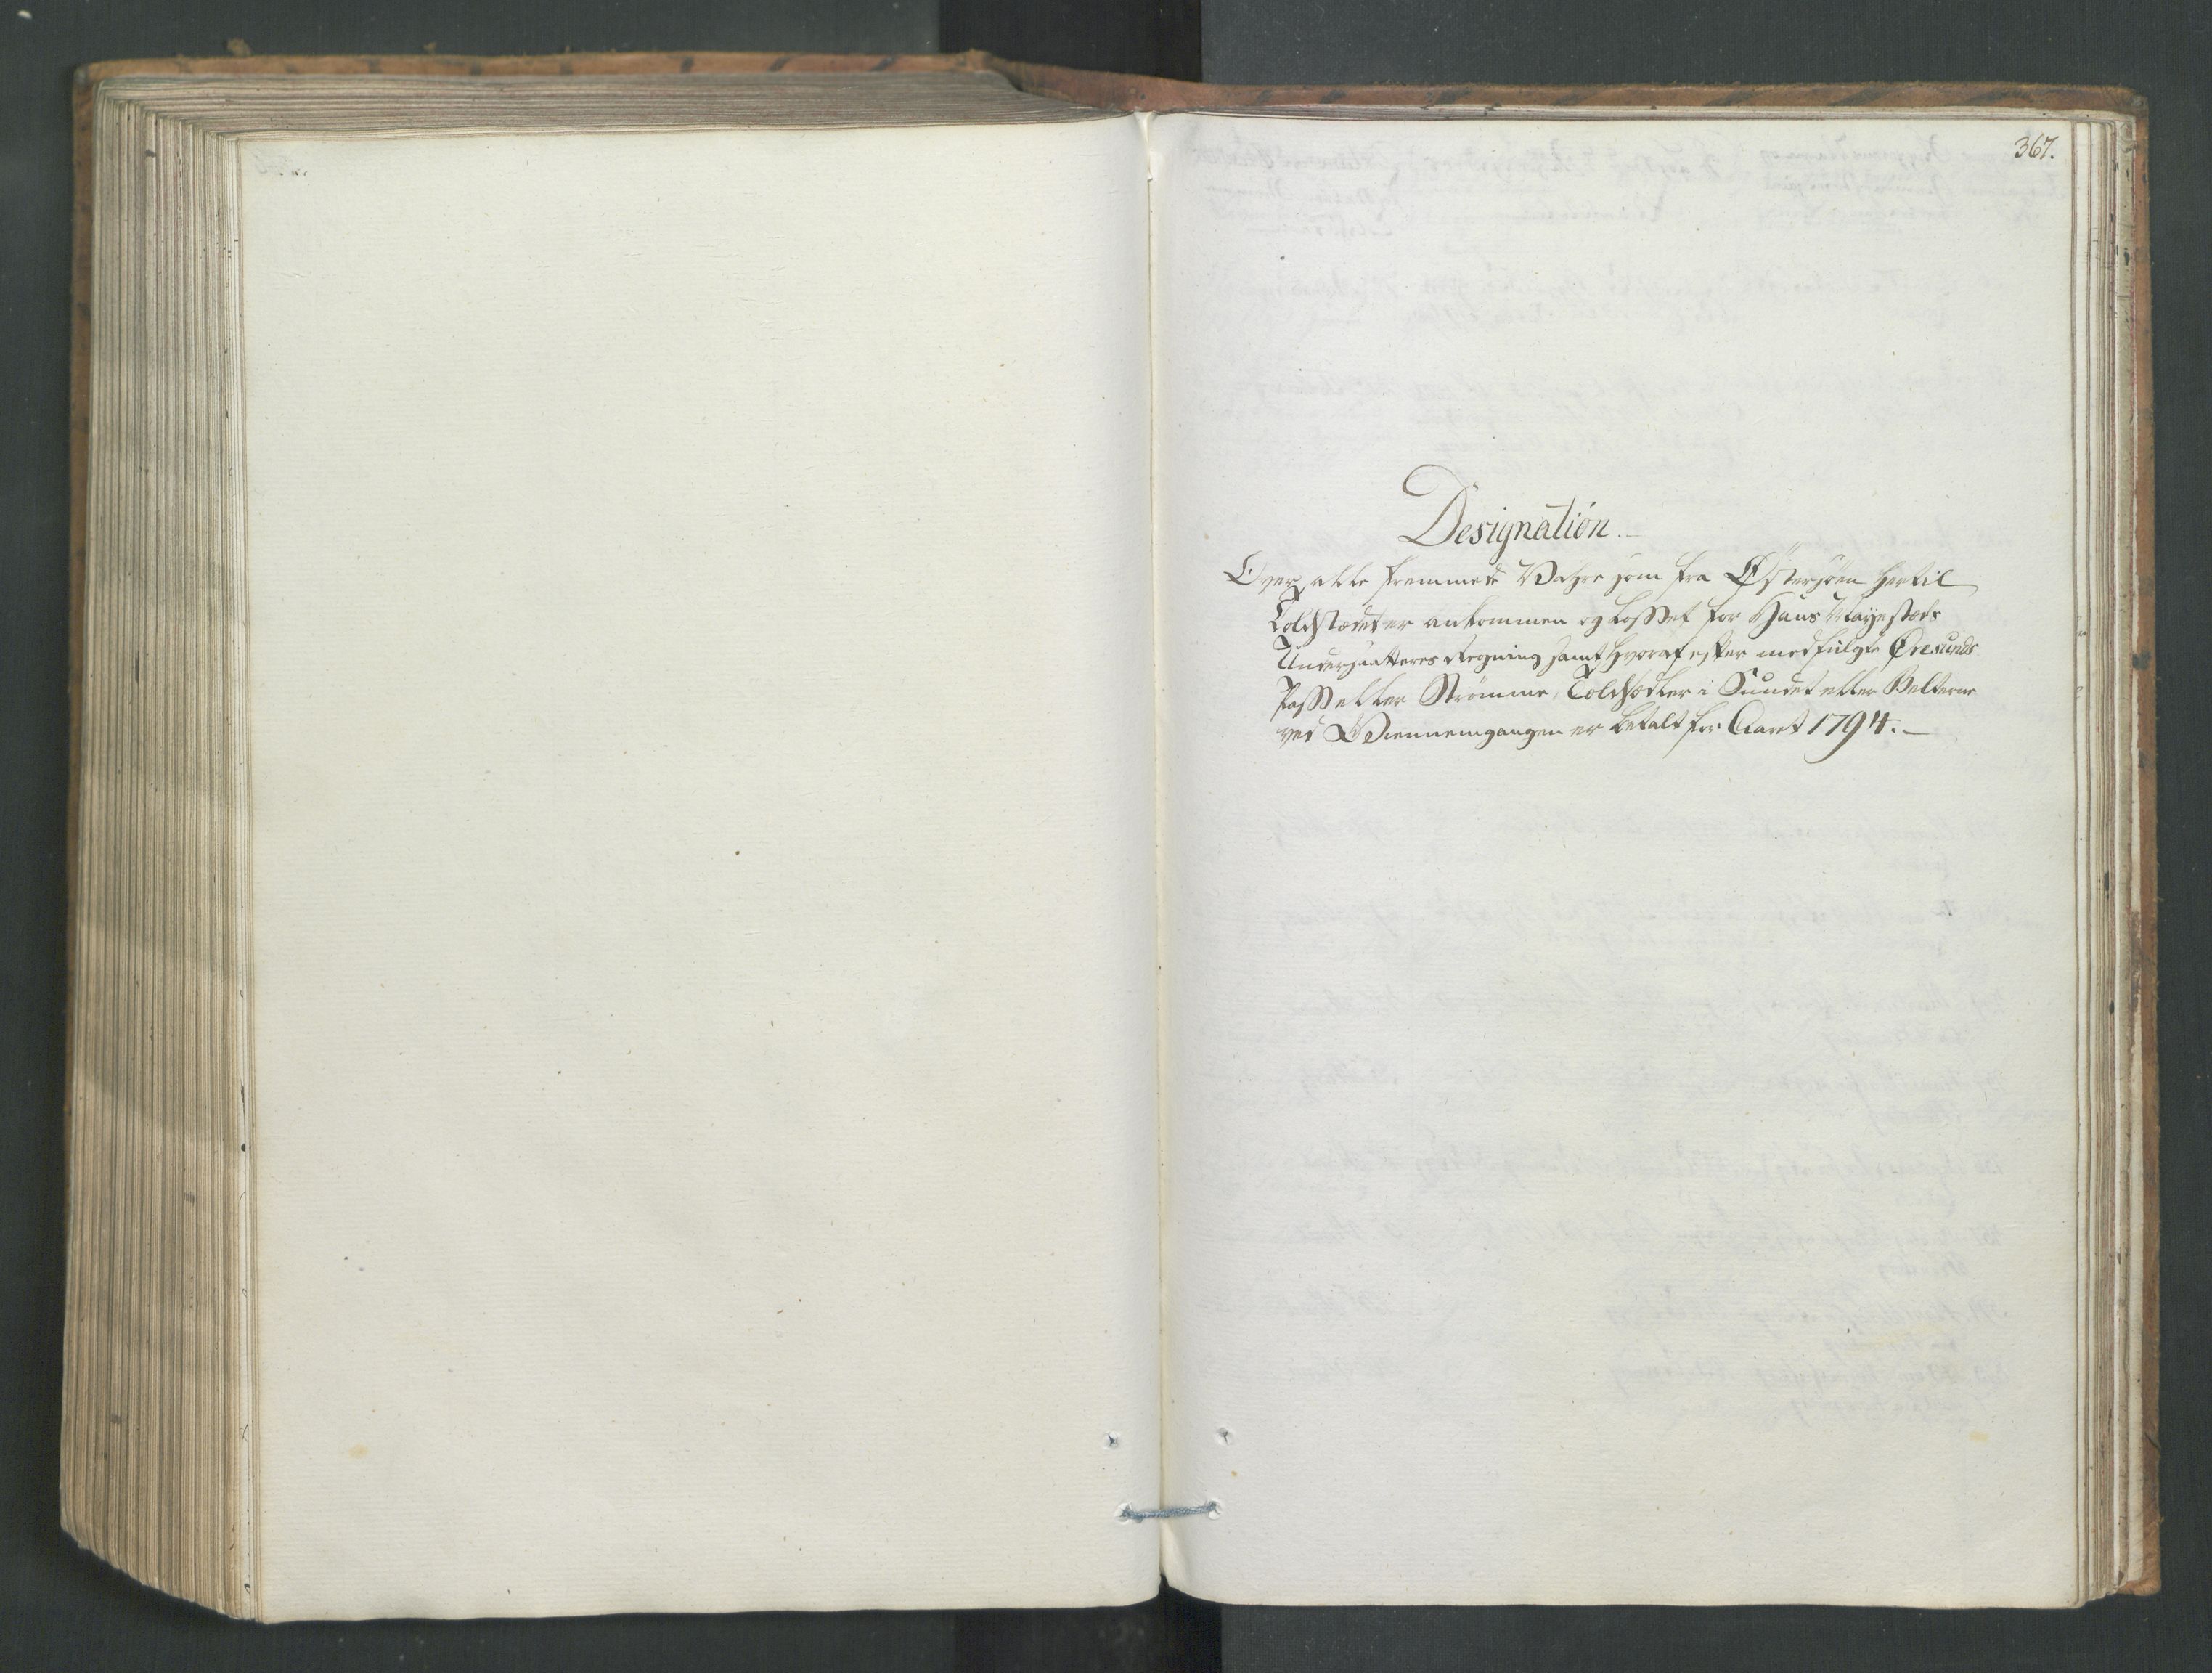 367.
Designation.
Over alle fremmede Vahre som fra Østersøen hertil
Toldstædet er ankommen og losset for Hans Mayestæts
Undersaatteres Regning samt hvoraf efter medfulgte Øresunds
Pass eller Strømme, Toldsedler i Sundet eller Belterne
ved Giennemgangen er betalt for Aaret 1794.